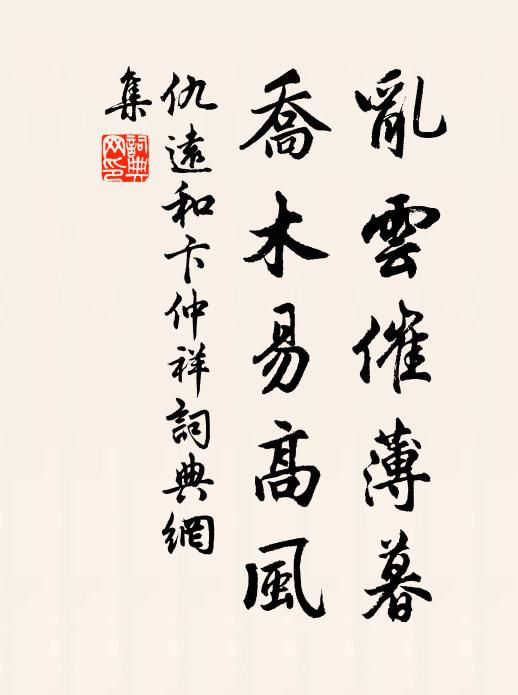 亂雲催薄暮
喬木易高風
仇遠和卞仲祥詞典網
集
詞典
网印